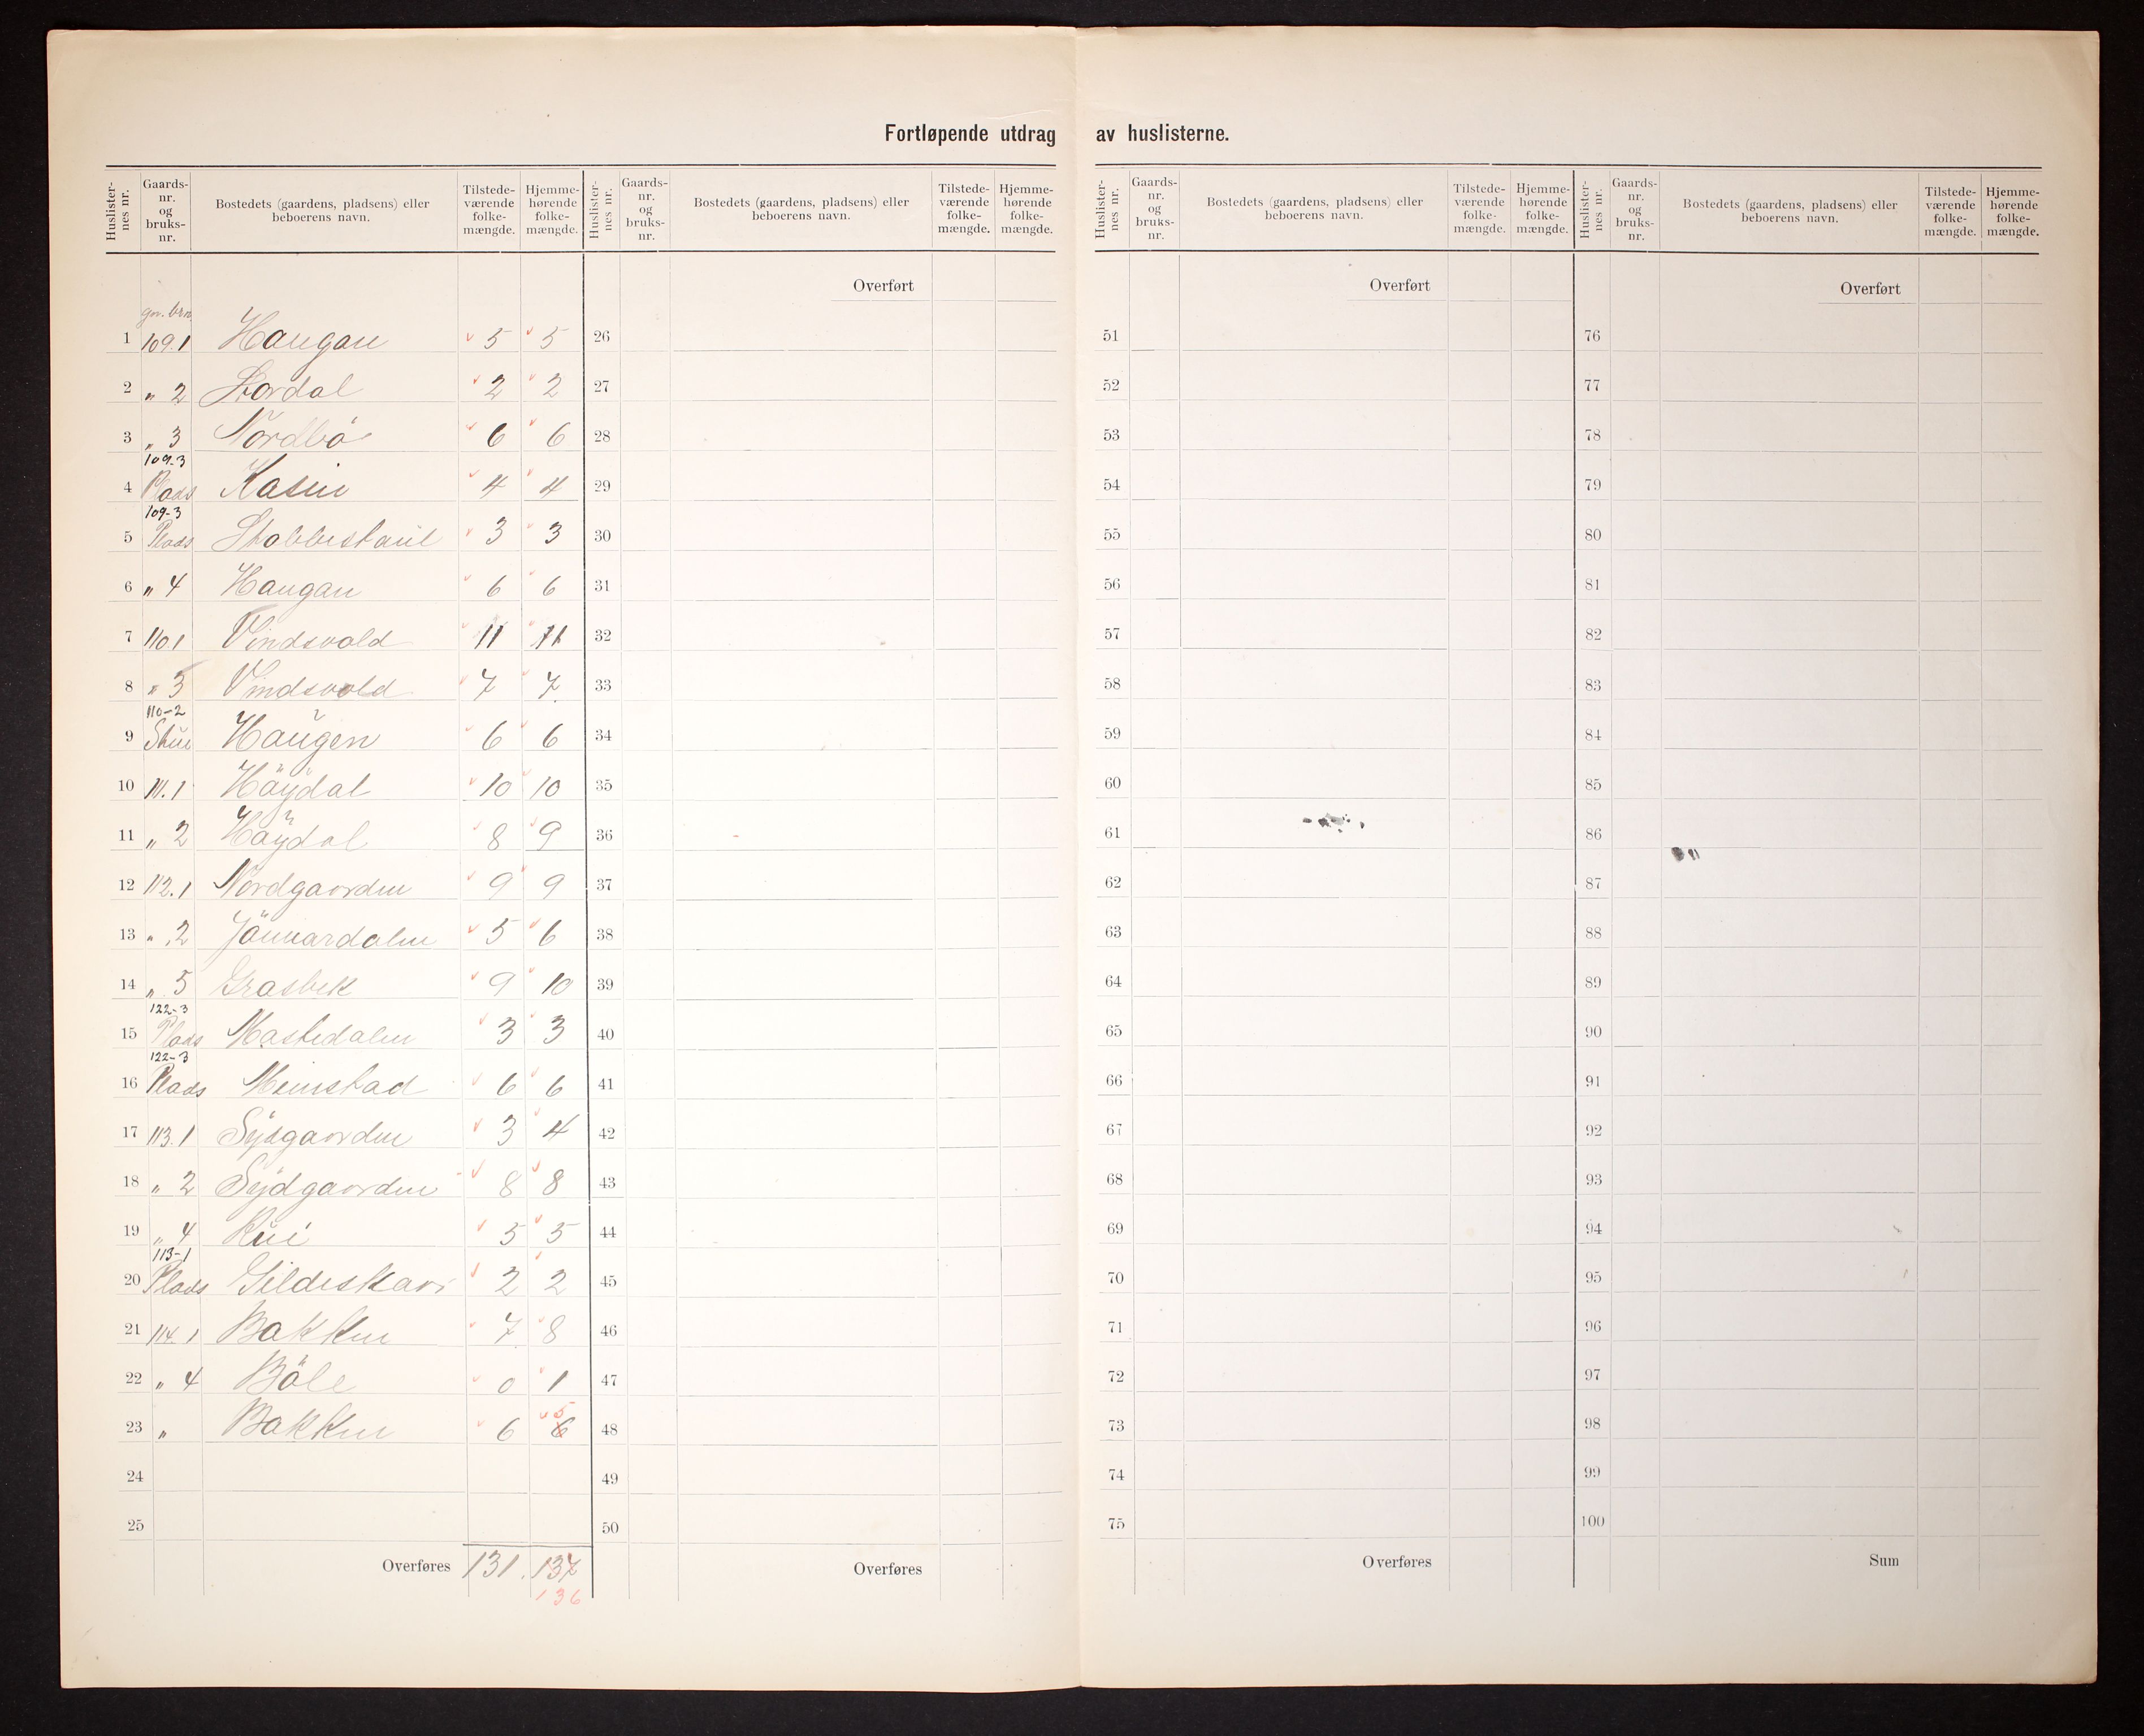 Fortløpende utdrag av huslisterne.
Huslister-nes nr. Gaards-nr. og bruks-nr. Bostedets (gaardens, pladsens) eller beboerens navn. Tilstede-værende folke-mængde. Hjemme-hørende folke-mængde. Huslister-nes nr. Gaards-nr. og bruks-nr. Bostedets (gaardens, pladsens) eller beboerens navn. Tilstede-værende folke-mængde. Hjemme-hørende folke-mængde. Huslister-nes nr. Gaards-nr. og bruks-nr. Bostedets (gaardens, pladsens) eller beboerens navn. Tilstede-værende folke-mængde. Hjemme-hørende folke-mængde. Huslister-nes nr. Gaards-nr. og bruks-nr. Bostedets (gaardens, pladsens) eller beboerens navn. Tilstede-værende folke-mængde. Hjemme-hørende folke-mængde.
Overført Overført Overført
gnr. brn.
1 109.1 Haugan 5 5 26 51 76
2 " 2 Stordal 2 2 27 52 77
3 " 3 Nordbö 6 6 28 53 78
109-3
4 Plads Kasin 4 4 29 54 79
109-3
5 Plads Stabbestaul 3 3 30 55 80
6 " 4 Haugan 6 6 31 56 81
7 110.1 Vindsvold 11 11 32 57 82
8 " 3 Vindsvold 7 7 33 58 83
110-2
9 Haugen 6 6 34 59 84
10 111.1 Höydal 10 10 35 60 85
11 " 2 Höydal 8 9 36 61 86
12 112.1 Nordgaarden 9 9 37 62 87
13 " 2 5 6 38 63 88
14 " 5 Grasbek 9 10 39 64 89
122-3
15 Plads Mastedalen 3 3 40 65 90
122-3
16 Plads 6 6 41 66 91
17 113.1 Sydgaarden 3 4 42 67 92
18 " 2 Sydgaarden 8 8 43 68 93
19 " 4 5 5 44 69 94
113-1
20 Plads Gildeskaar 2 2 45 70 95
21 114.1 Bakken 7 8 46 71 96
22 " 4 Böle 0 1 47 72 97
5
23 " Bakken 6 6 48 73 98
24 49 74 99
25 50 75 100
Overføres 131 137 Overføres Overføres Sum
136